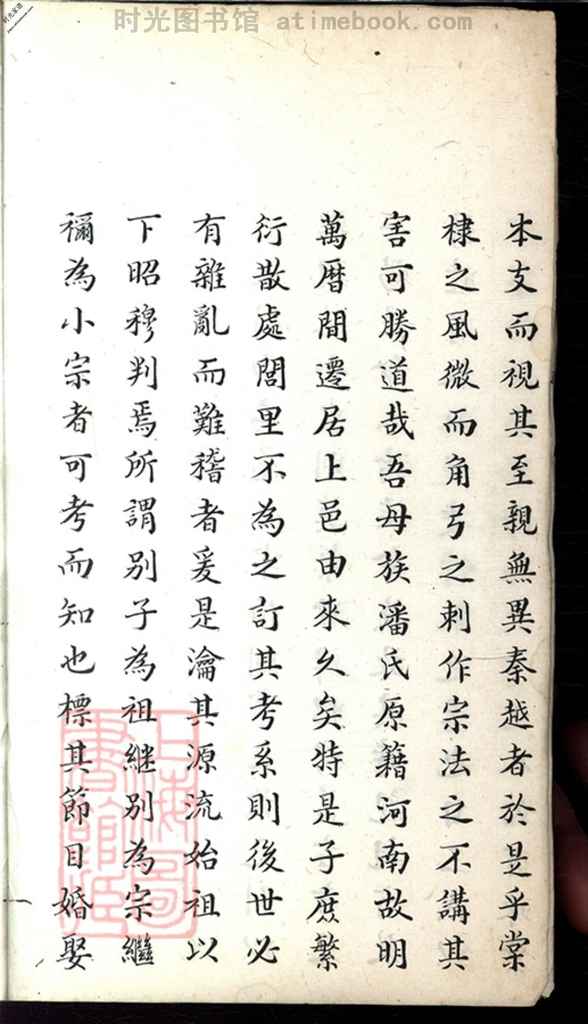 时光图书馆 atimebook.com
本支而視其至親無異秦越者於是乎棠
棣之風微而角弓之刺作宗法之不講其
害可勝道哉吾母族潘氏原籍河南故明
萬曆間遷居上邑由來久矣特是子庶繁
衍散處閭里不為之訂其考系則後世必
有雜亂而難稽者爰是瀹其源流始祖以
下昭穆判焉所謂別子為祖継別為宗繼
禰為小宗者可考而知也標其節目婚娶